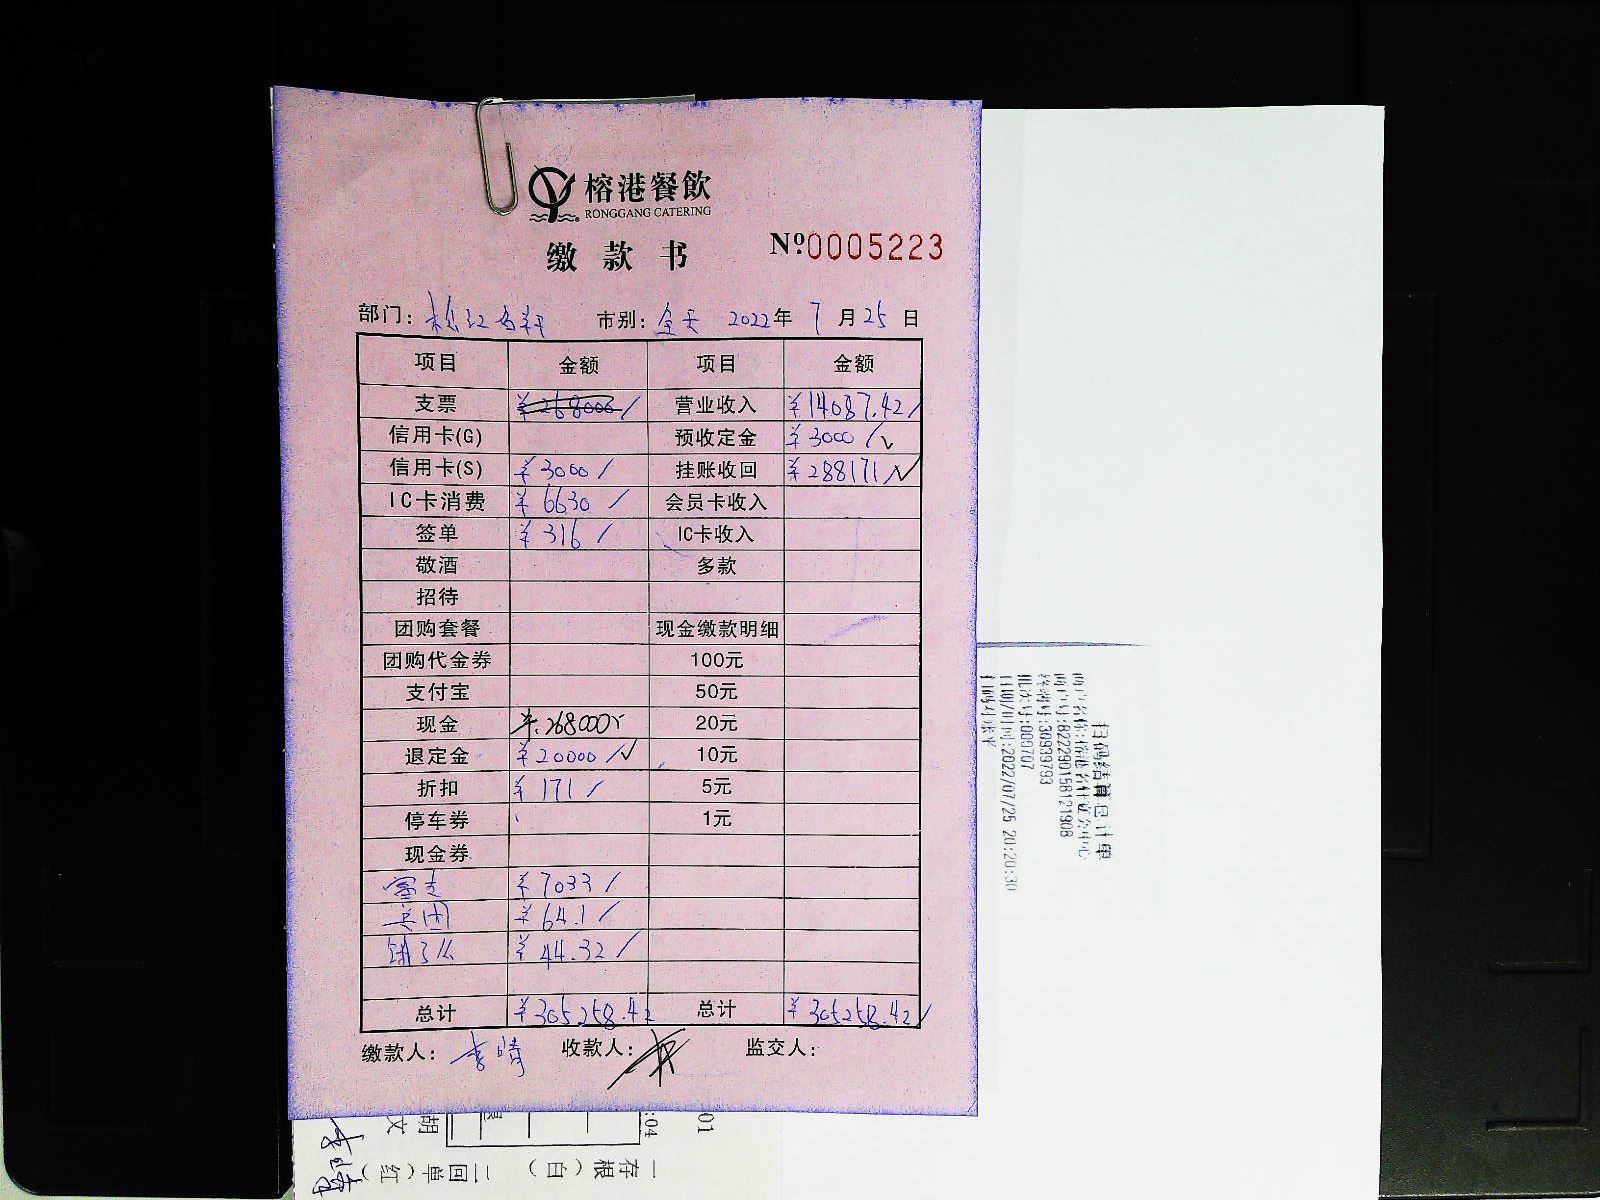 榕港餐飲
RONGGANG CATERING
缴款书 №0005223
部门: 市别: 全天 2022年 7月25日
项目 金额 项目 金额
支票 ¥268000/ 营业收入 ¥14087.42/
信用卡(G) 预收定金 ¥3000/√
信用卡(S) ¥3000/ 挂账收回 ¥288171/√
IC卡消费 ¥6630/ 会员卡收入
签单 ¥316/ IC卡收入
敬酒 多款
招待
团购套餐 现金缴款明细
团购代金券 100元
支付宝 50元
现金 ¥268000
退定金 ¥20000/√ 10元
20元
折扣 ¥171/ 5元
停车券 1元
现金券
富友 ¥7033/
兵团 ¥64.1/
饿了么 ¥44.32/
总计 ¥305258.42 总计 ¥305258.42/
缴款人: 李晴 收款人: 监交人:
扫码结算总计单
商户号:822290158121908
终端号:30939793
批次号:000707
日期/时间:2022/07/25 20:20:30
胡
文
:04
01
一存根(白) 二回单(红)